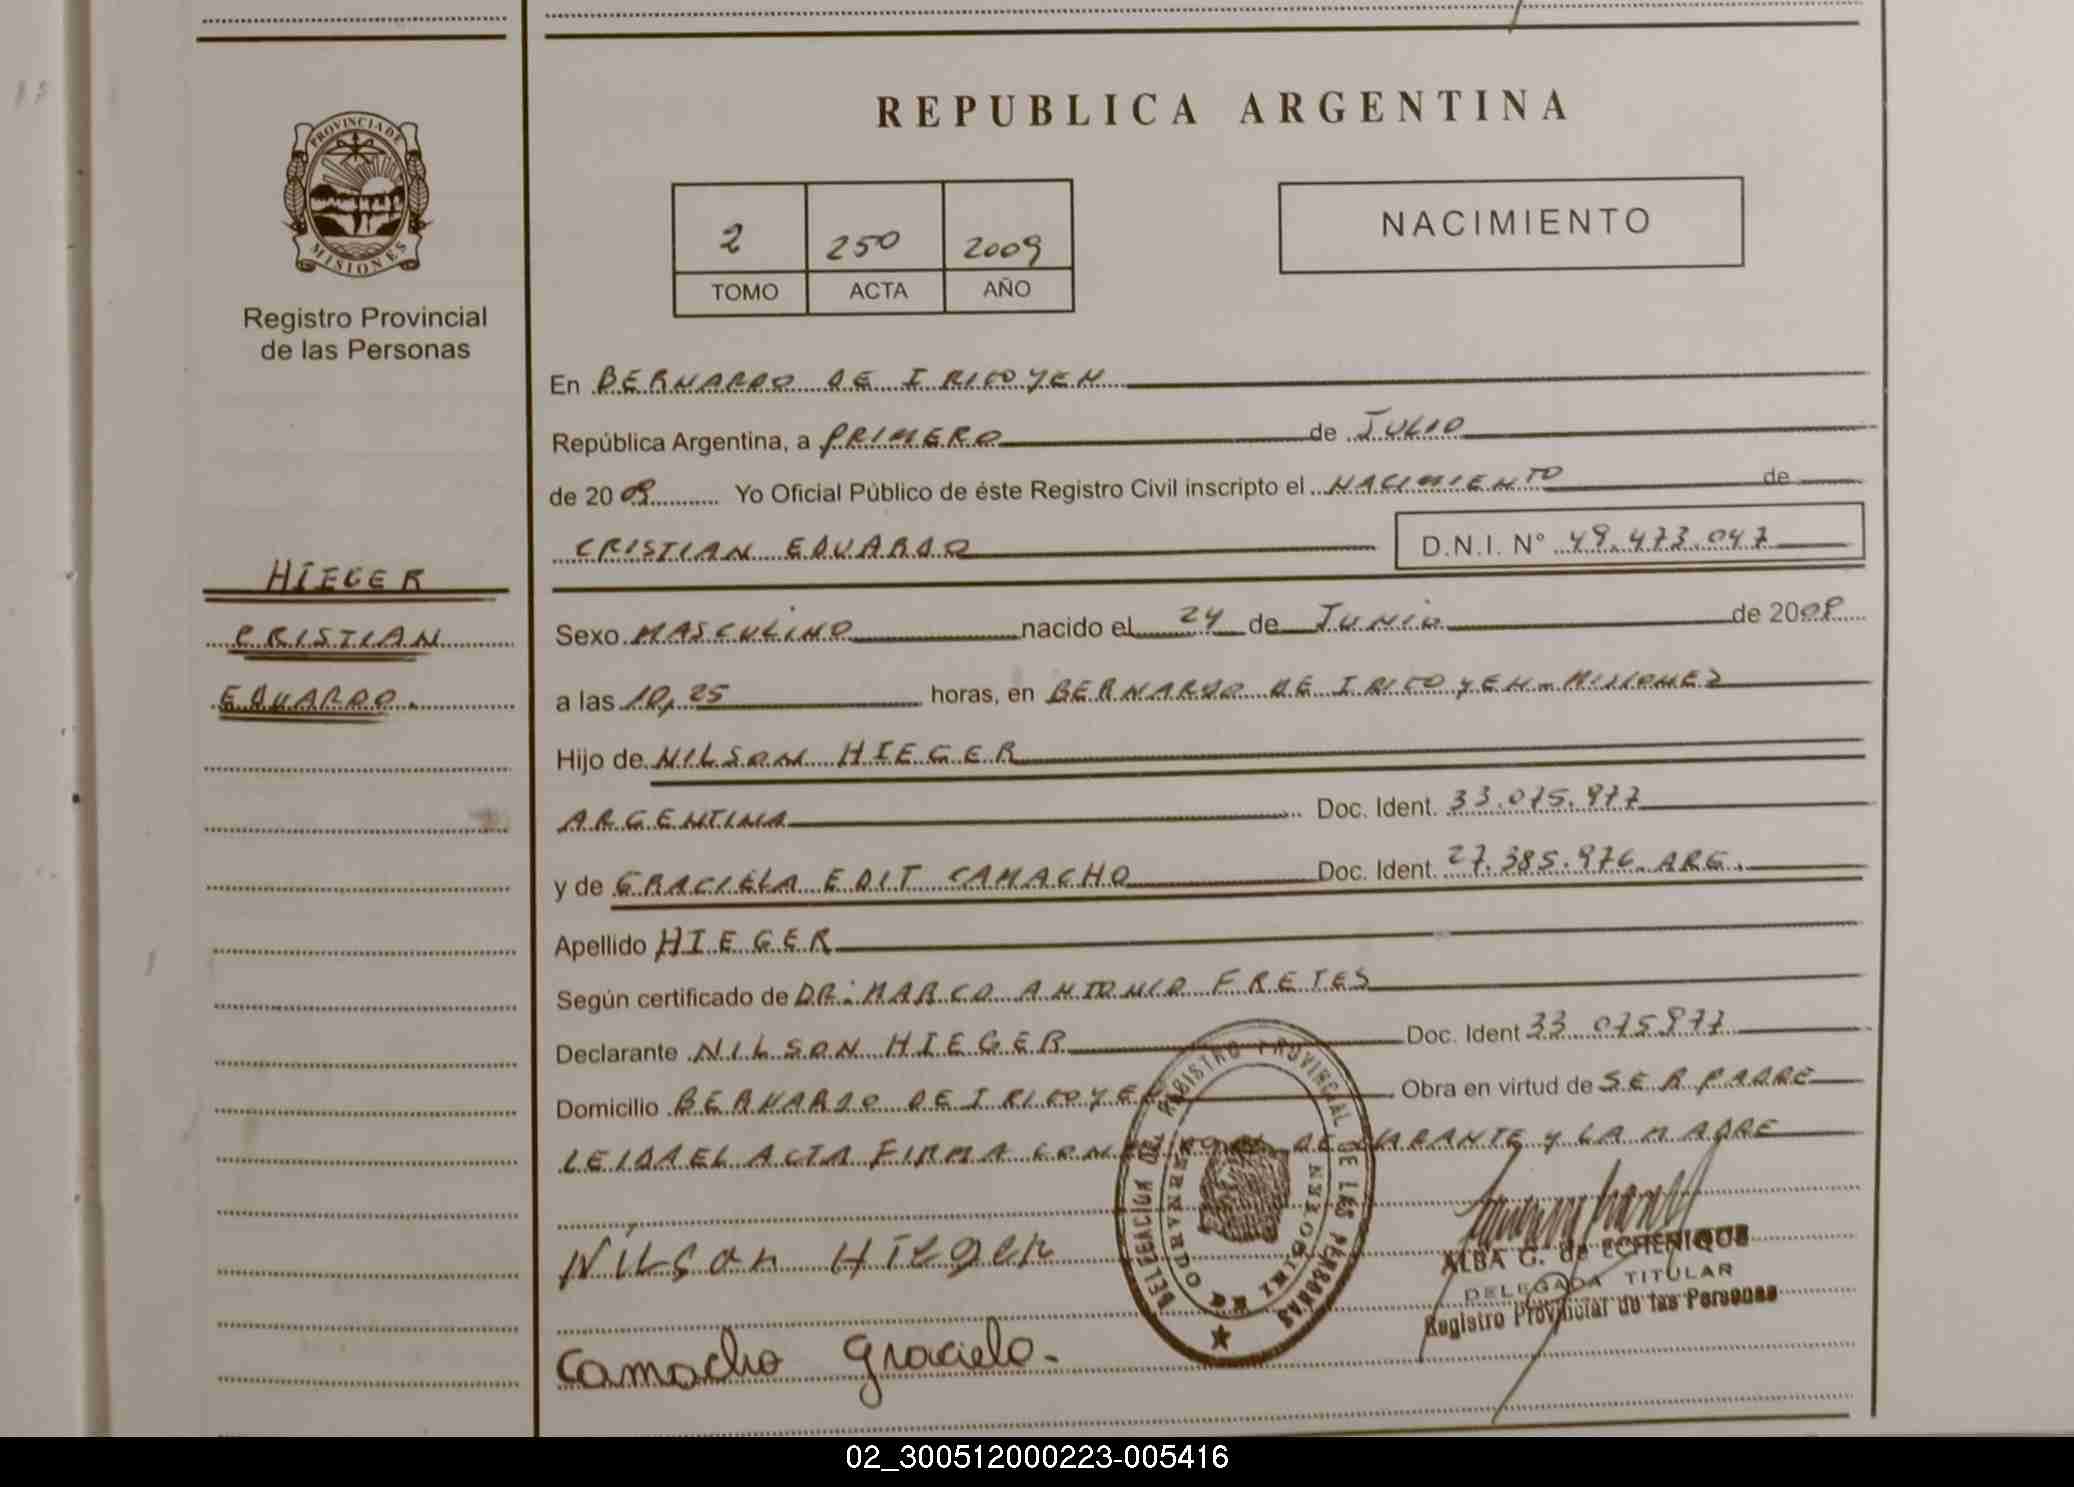 REPUBLICA ARGENTINA
PROVINCIA DE MISIONES
Registro Provincial
de las Personas
2 250 2009
TOMO ACTA AÑO
NACIMIENTO
En BERNARDO DE IRIGOYEN
República Argentina, a PRIMERO de JULIO
de 2009 Yo Oficial Público de éste Registro Civil inscripto el NACIMIENTO de
CRISTIAN EDUARDO D.N.I. N° 49.473.047
HIEGER
CRISTIAN
EDUARDO.
Sexo MASCULINO nacido el 24 de JUNIO de 2009
a las 10,25 horas, en BERNARDO DE IRIGOYEN - MISIONES
Hijo de NILSON HIEGER
ARGENTINA Doc. Ident. 33.075.977
y de GRACIELA EDIT CAMACHO Doc. Ident. 27.385.976 ARG.
Apellido HIEGER
Según certificado de DR: MARCO ANTONIO FRETES
Declarante NILSON HIEGER Doc. Ident 33 075977
Domicilio BERNARDO DE IRIGOYEN Obra en virtud de SER PADRE
LEIDA EL ACTA FIRMA CONMIGO DECLARANTE Y LA MADRE
NILSON HIEGER
Camacho Graciela.
DELEGACION DEL REGISTRO PROVINCIAL DE LAS PERSONAS
BERNARDO DE IRIGOYEN
ALBA G. de ECHENIQUE
DELEGADA TITULAR
Registro Provincial de las Personas
02_300512000223-005416